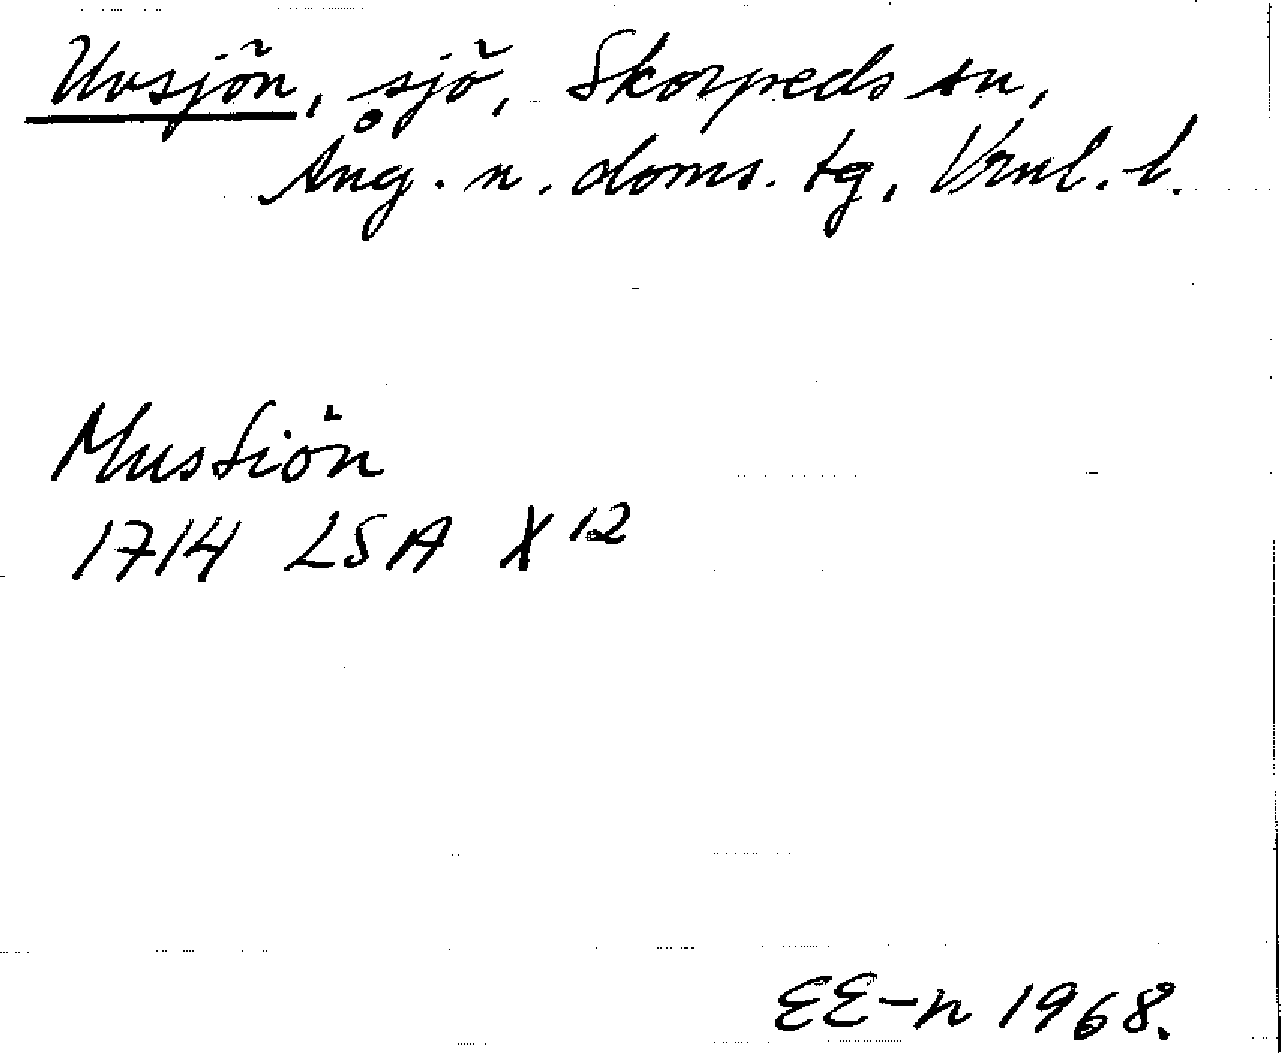 Uvsjön, sjö, Skorpeds sn,
Ång. n. doms. tg, Vrnl. l.
Mussiön
1714 LSA X 12
EE-n 1968.